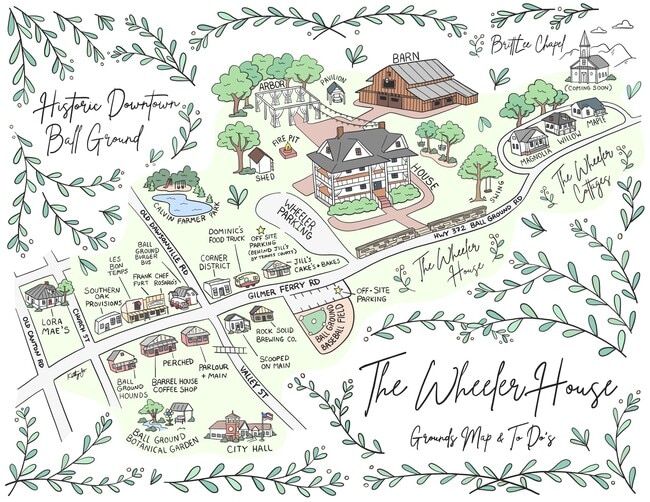 Historic Downtown
Ball Ground
BrittLee Chapel
(COMING SOON)
ARBORY
PAVILION
BARN
FIRE PIT
SHED
HOUSE
SWING
MAGNOLIA
WILLOW
MAPLE
The Wheeler
Cottages
HWY 372 BALL GROUND RD
The Wheeler
House
WHEELER
PARKING
CALVIN FARMER PARK
OLD DAWSONVILLE RD
DOMINIC'S
FOOD TRUCK
OFF SITE
PARKING
(BEHIND JILL'S
BY TENNIS COURTS)
JILL'S
CAKES + BAKES
CORNER
DISTRICT
BALL
GROUND
BURGER
BUS
LES
BON
TEMPS
FRANK CHEF
FURT
SOUTHERN
OAK
PROVISIONS
GILMER FERRY RD
OFF-SITE
PARKING
BALL GROUND
BASEBALL FIELD
LORA
MAE'S
CHURCH ST
OLD CANTON RD
ROCK SOLID
BREWING CO.
SCOOPED
ON MAIN
PERCHED
PARLOUR
+ MAIN
BARREL HOUSE
COFFEE SHOP
BALL
GROUND
HOUNDS
VALLEY ST
BALL GROUND
BOTANICAL GARDEN
CITY HALL
The Wheeler House
Grounds Map & To Do's